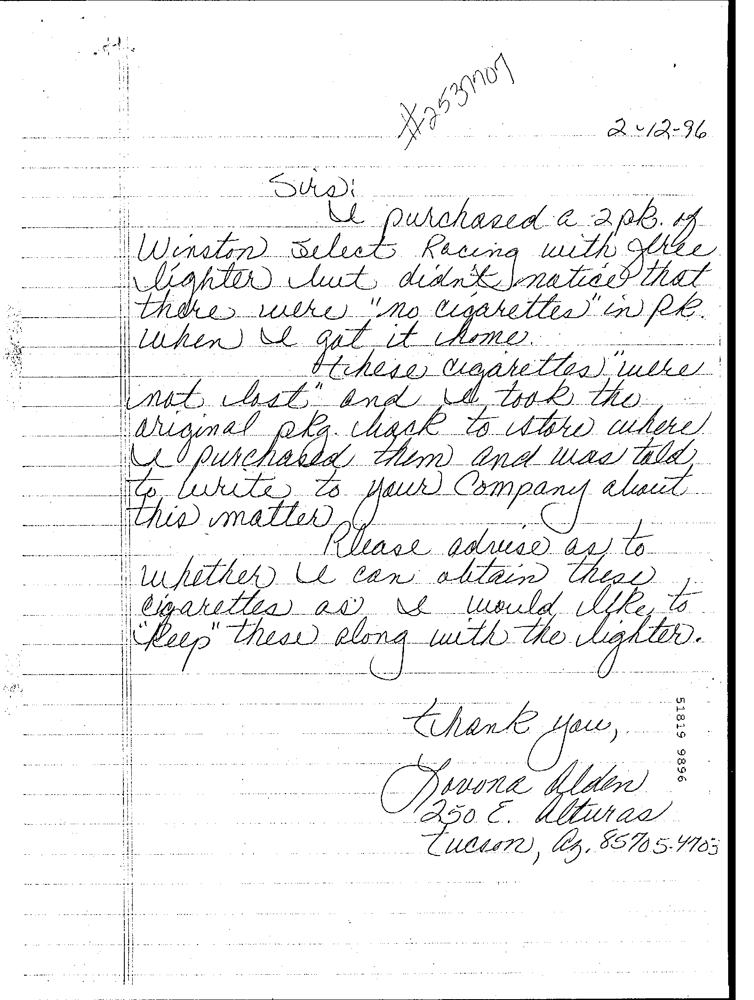 #2537707
2-12-96
Sirs:
I purchased a 2 pk. of
Winston Select Racing with free
lighter but didn't notice that
there were "no cigarettes" in pk.
when I got it home.
These cigarettes "were
not lost" and I took the
original pkg. back to store where
I purchased them and was told
to write to your Company about
this matter.
Please advise as to
whether I can obtain these
cigarettes as I would like to
"keep" these along with the lighter.
Thank you,
Lovona Alden
250 E. Alturas
Tucson, Az. 85705-4703
51819 9896